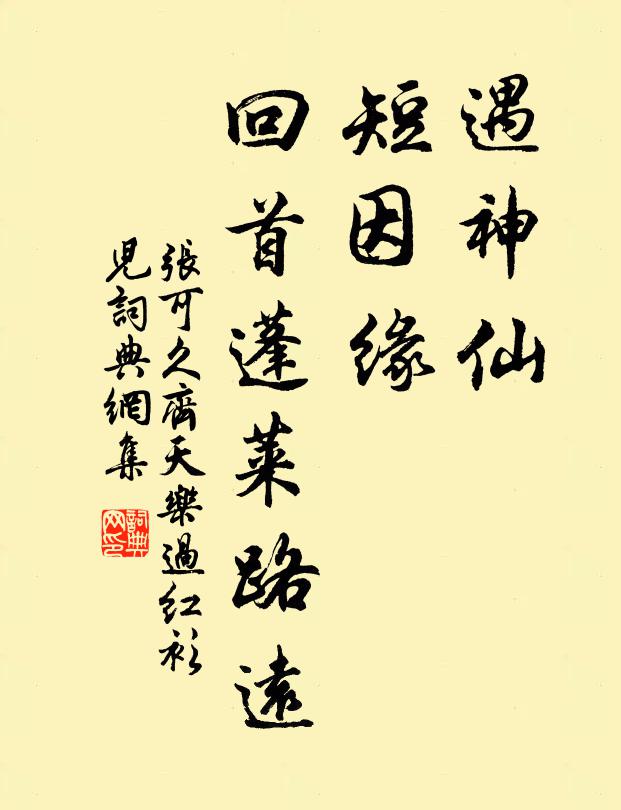 遇神仙
短因缘
回首蓬莱路遠
張可久齊天樂過红衫
児詞典網集
詞典
网印